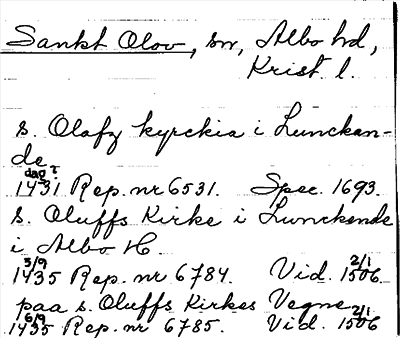 Sankt Olov, sn, Albo hd,
Krist. l.
s. Olafz kyrckia i Lunckan-
de
dag?
1431 Rep. nr 6531. Spec. 1693.
s. Oluffs Kirke i Lunckende
i Albo H.
5/9 2/1
1435 Rep. nr 6784. Vid. 1506.
paa s. Oluffs Kirkes Vegne
6/9 2/1
1435 Rep. nr 6785. Vid. 1506